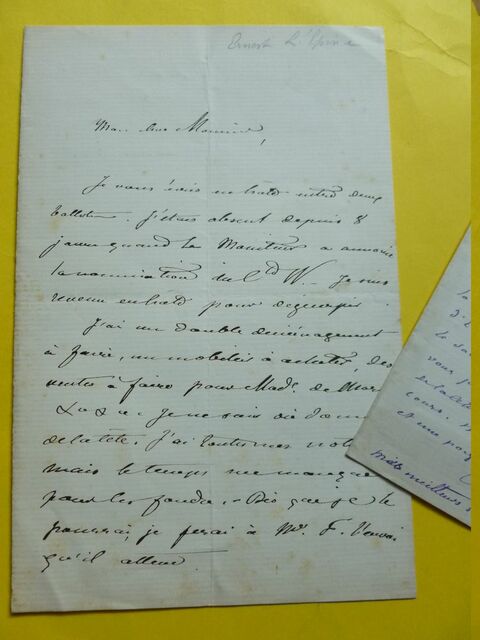 Ernest L'Epine
Mon cher Monsieur,
Je vous écris en hâte entre deux
J'étais absent depuis 8
jours quand le Moniteur a annoncé
la nomination du Cte W. Je suis
revenu en hâte pour déguerpir
J'ai un double déménagement
à faire, un mobilier à acheter, des
ventes à faire pour Made de
&a &a. Je ne sais où donner
de la tête. J'ai toutes mes notes
mais le temps me manque
pour les fondre. Dès que je le
pourrai, je ferai à Mr F.
qu'il attend
la
d'
le
vous
de la
cours.
et une
mes meilleurs